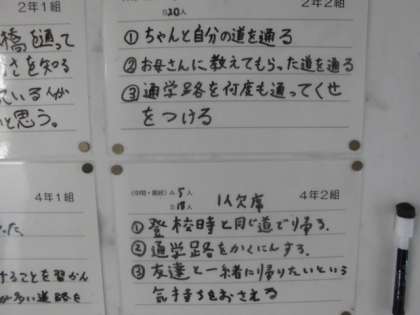 2年1組
橋を通って
さを知る
ている人が
いと思う。
2年2組
B20人
①ちゃんと自分の道を通る
②お母さんに教えてもらった道を通る
③通学路を何度も通ってくせ
をつける
4年1組
った。
することを習かん
が多い道路を
4年2組
A5人
1人欠席
①登校時と同じ道で帰る。
②通学路をかくにんする。
③友達と一緒に帰りたいという
気持ちをおさえる